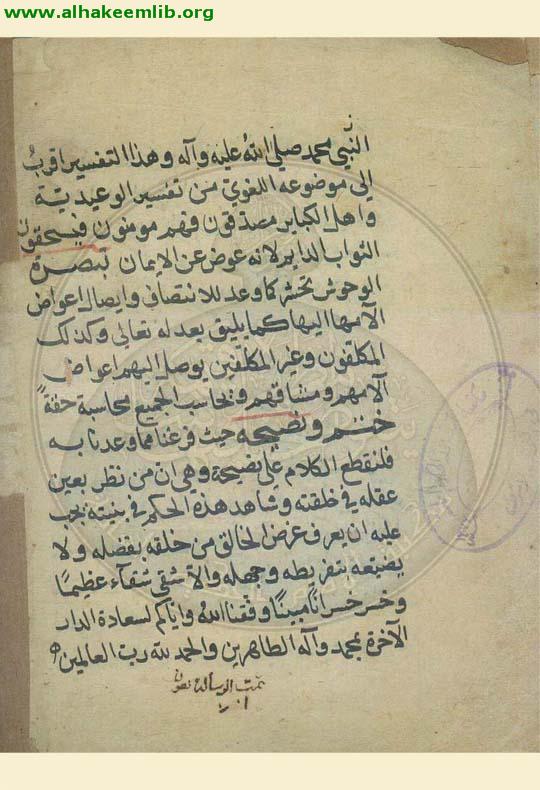 www.alhakeemlib.org
النبي محمد صلي الله عليه وآله وهذا التفسير اقرب
الي موضوعه اللغوي من تفسير الوعيدية
واهل الكباير مصدقون فهم مومنون فيستحقون
الثواب الدايم لانه عوض عن الايمان تبصرة
الوحوش تحشر كما وعد للانتصاف وايصال اعواض
الآمها اليها كما يليق بعدله تعالى وكذلك
المكلفون وغير المكلفين يوصل اليهم اعواض
آلامهم ومشاقهم ويحاسب الجميع محاسبة حقة
ختم ونصيحة حيث فرغنا مما وعدنا به
فلنقطع الكلام علي نصيحة وهي ان من نظر بعين
عقله في خلقته وشاهد هذه الحكم في بنيته يجب
عليه ان يعرف غرض الخالق من خلقه بفضله ولا
يضيعه بتفريطه وجهله والا شقي شقآء عظيمًا
وخسر خسرانًا مبينًا وفقنا الله واياكم لسعادة الدار
الآخرة بمحمد وآله الطاهرين والحمد لله رب العالمين
تمت الرسالة